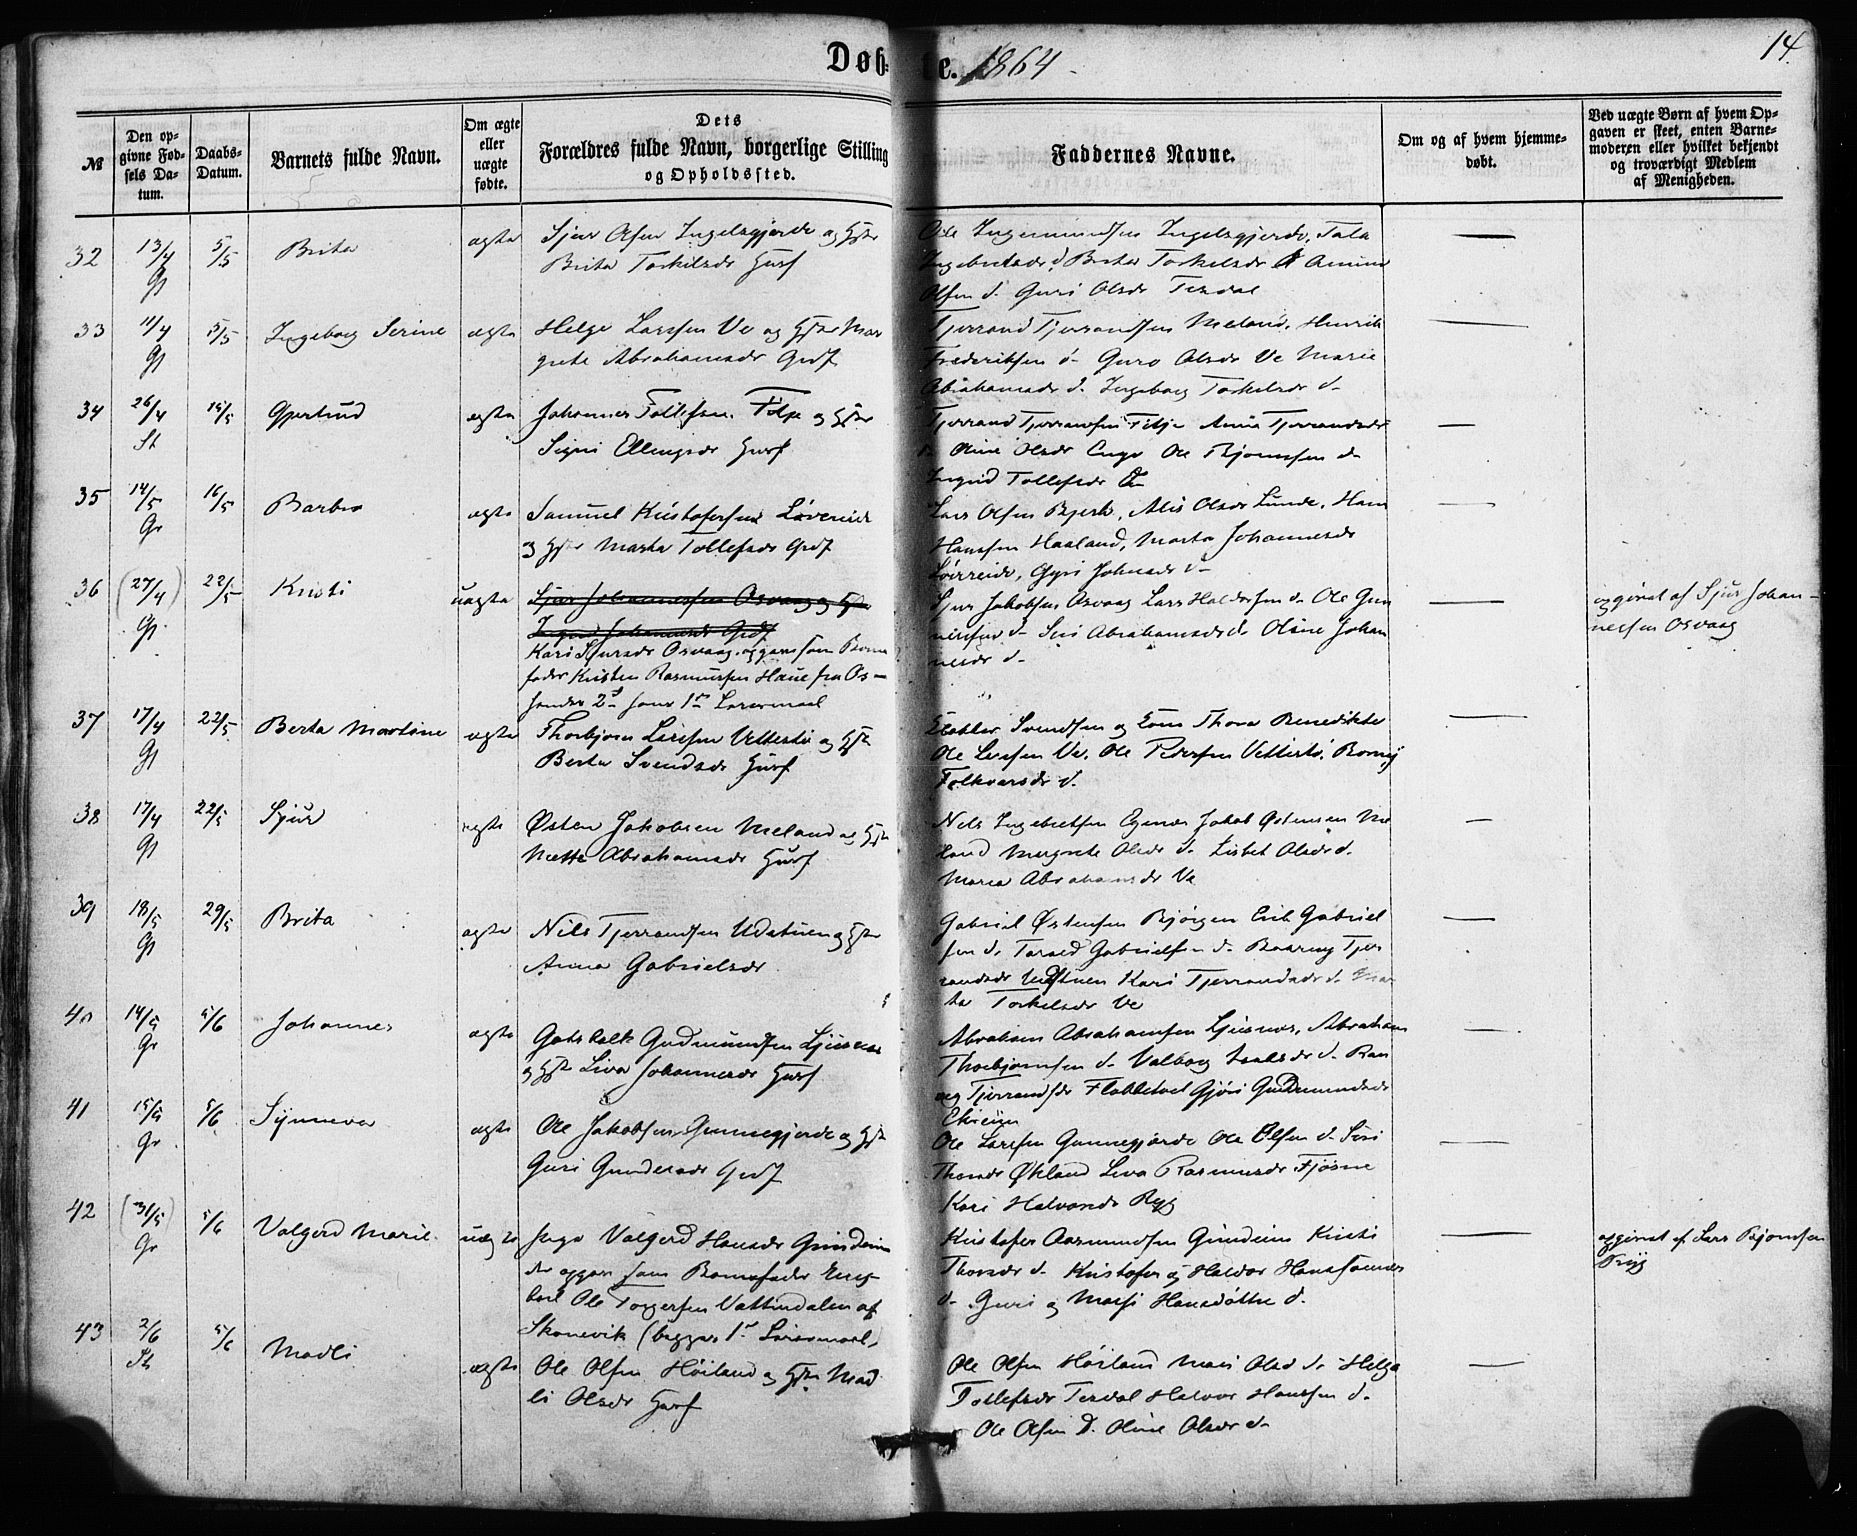 Døbte. 1864.
14.
№
Den opgivne Fødsels Datum.
Daabs-Datum.
Barnets fulde Navn.
Om ægte eller uægte fødte.
Dets Forældres fulde Navn, borgerlige Stilling og Opholdssted.
Faddernes Navne.
Om og af hvem hjemmedøbt.
Ved uægte Børn af hvem Opgaven er skeet, enten Barnemoderen eller hvilket bekjendt og troværdigt Medlem af Menigheden.
32 13/4 Gj 5/5 Brita ægte
Sjur Olsen Ingelsgjerde og Hstr
Brita Torkelsdr Gurf
Ole Ingemundsen Ingelsgjerde, Tala
Ingebretsdr d Brita Torkelsdr d Amund
Olsen d. Guri Olsdr Tesdal
33 11/4 Gj 5/5 Ingeborg Serine ægte
Helge Larssen Ve og Hstr Mar
grete Abrahamsdr Grdf
Tjerrand Tjerrandsen Meland, Henrik
Frederiksen d- Guro Olsdr Ve Marie
Abrahamsdr d. Ingeborg Torkelsdr d-
34 26/4 St 15/5 Gjertrud ægte
Johannes Tollefsen Fitje og Hstr
Signi Ellingsdr Gurf
Tjerrand Tjerrandsen Fitje Anna Tjerrandsdr
d. Oline Olsdr Ole Bjørnsen d-
Ingrid Tollefsdr d-
35 14/5 Gr 16/5 Barbro ægte
Samuel Kristofersen
og Hstr Marta Tollefsdr Grdf
Lars Olsen Bjerk, Alis Olsdr Lunde, Hans
Hanssen Haaland, Marta Johannesdr
36 (27/4) Gj. 22/5 Kristi uægte
Sjur Johannessen Osvaag og Hstr
Ingrid Johannesdr Grdf
Kari Sjursdr Osvaag, opgav som Barne
fader Kristen Rasmussen Haue fra
2d hans 1ste Leiermaal
Sjur Jakobsen Osvaag Lars Haldorsen d- Ole Gun
nersen d- Siri Abrahamsdr d. Oline Johan
nesdr d-
opgivet af Sjur Johan-
nessen Osvaag
37 17/4 Gj 22/5 Berta Martine ægte
Thorbjørn Larssen Vettestø og Hstr
Berta Svendsdr Gurf
Svendsen og Kone Thora Benedikte
Ole Larssen Ve. Ole Pedersen Vettestø,
Folkvarsdr d.
38 17/4 Gj 22/5 Sjur ægte
Østen Jakobsen Meland og Hstr
Mette Abrahamsdr Gurf
Nils Ingebretsen Egenes Jakob Østensen Me
land Margrete Olsdr d. Lisbet Olsdr d.
Maria Abrahamsdr Ve
39 18/5 Gj 29/5 Brita ægte
Nils Tjerrandsen Udstuen og Hstr
Anna Gabrielsdr
Gabriel Østensen Bjørgen Erik Gabriel
sen d. Torald Gabrielsen d- Tjer
randsdr Udstuen Kari Tjerrandsdr d. Mar
ta Torkelsdr Ve
40 14/5 Gr 5/6 Johannes ægte
Gotskalk Gudmundsen Ljusnes
og Hstr Liva Johannesdr Gurf
Abraham Abrahamsen Ljusnes, Abraham
Thorbjørnsen d. Valborg d. Ran
veg Tjerrandsdr Gjøri Gudmundsdr
41 15/5 Gr. 5/6 Synneva ægte
Ole Jakobsen Gunnegjerde og Hstr
Guri Gundersdr Grdf
Ole Larssen Gunnegjerde Ole Olsen d. Siri
Thorsdr Økland Liva Rasmusdr Fjøsne
Kari Halvorsdr Ryg
42 (31/5) Gr 5/6 Valgerd Marie uægte
Pige Valgerd Hansdr Grindeim
der opgav som Barnefader Ung-
karl Ole Torgersen Vattindalen af
Skonevik (begges 1ste Leiermaal)
Kristofer Aasmundsen Grindeim Kristi
Thorsdr d. Kristofer og Haldor Hanssønner
d- Guri og Marsi Hansdøttre d.
opgivet af Lars Bjørnsen
Ryg
43 2/6 St 5/6 Madli ægte
Ole Olsen Høiland og Hstr Mad
li Olsdr Gurf
Ole Olsen Høiland Mari Olsd d- Helga
Tollefsdr Tesdal Halvor Hanssen d.
Ole Olsen d. Oline Olsdr d-